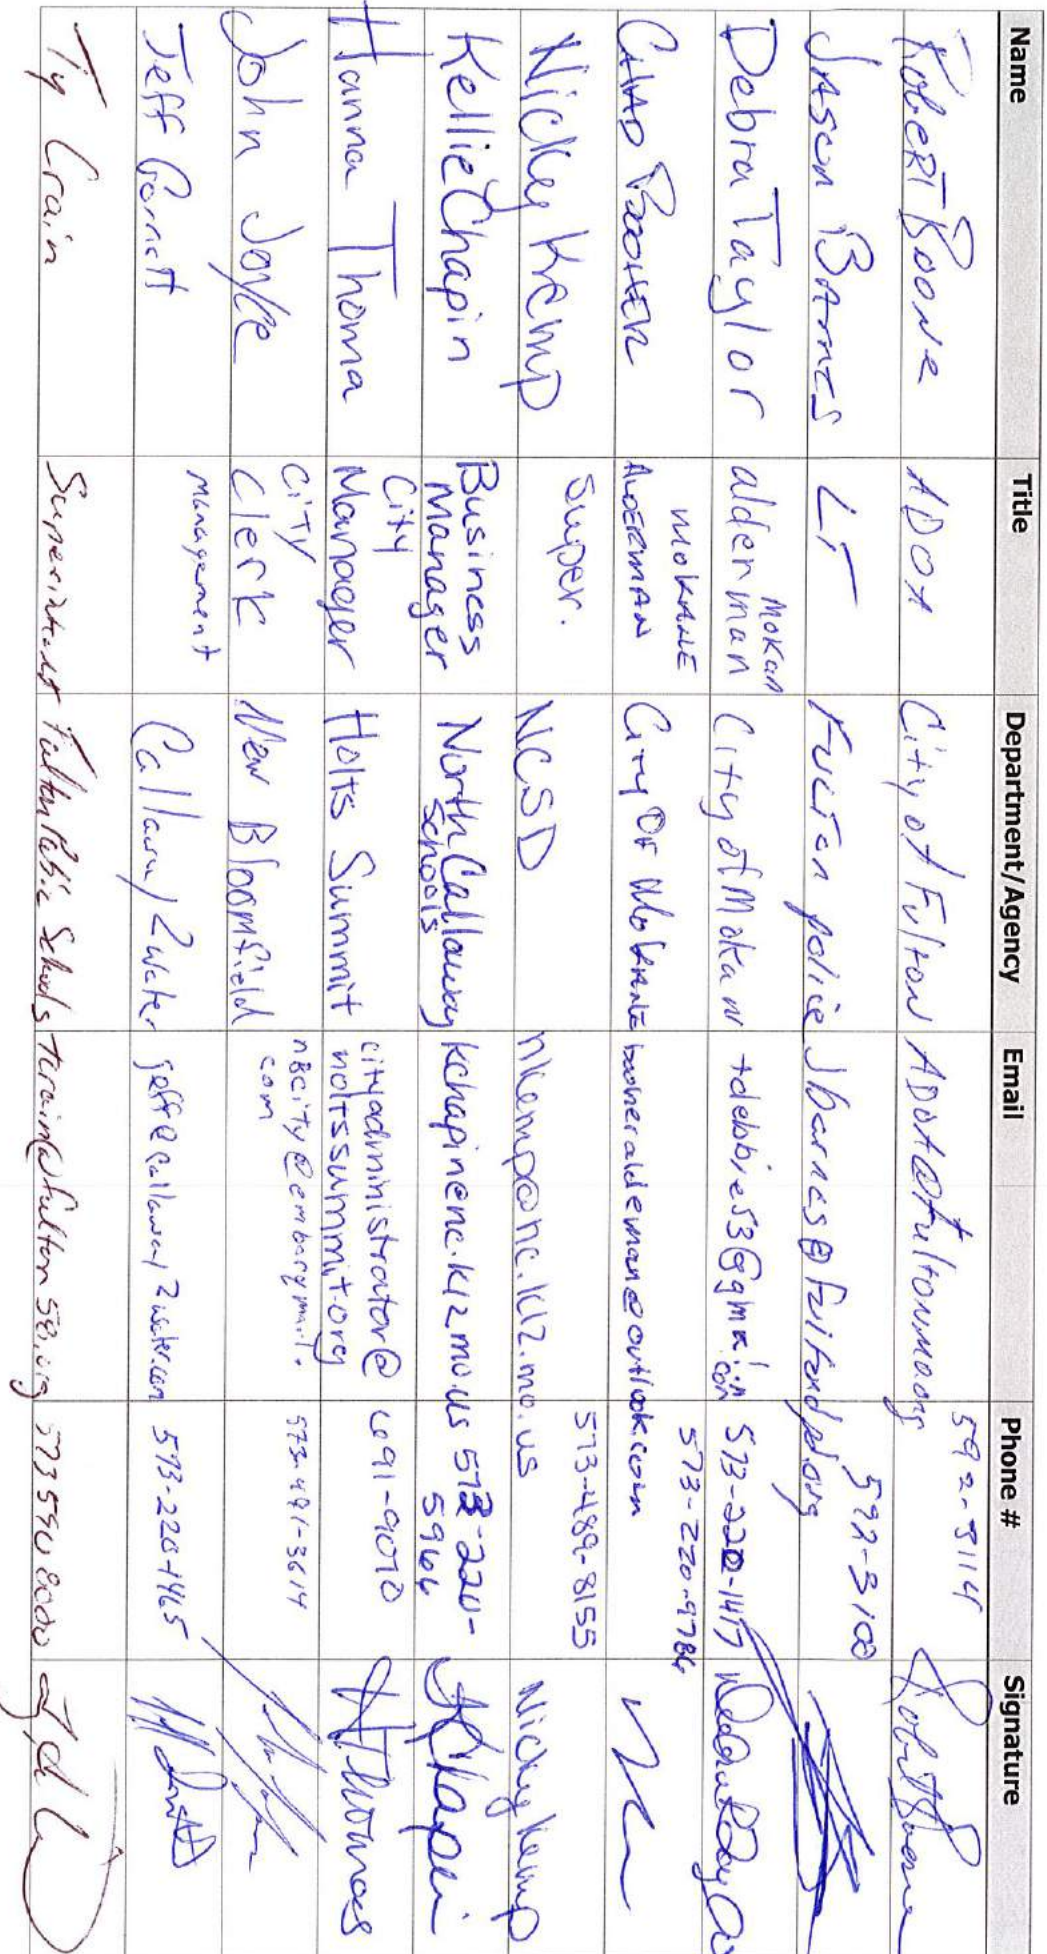 Name Title Department/Agency Email Phone # Signature
Robert Boone ADOA City of Fulton ADOA@fultonmo.org 592-3114 Robert Boone
Jason Barnes LT Fulton police Jbarnes@fultonpd.org 592-3100
Debra Taylor alderman Mokan City of Mokan tdebbie53@gmail.com 573-220-1417
CHAD BOOHER MOKANE ALDERMAN City Of MOKANE booheralderman@outlook.com 573-220-9786
Nicky Kemp Super. NCSD nkemp@nc.k12.mo.us 573-489-8155 Nicky Kemp
Kellie Chapin Business Manager North Callaway Schools kchapin@nc.k12.mo.us 573-220-5966 K Chapin
Hanna Thoma City Manager Holts Summit cityadministrator@holtssummit.org 691-9070 H Thomas
John Joyce City Clerk New Bloomfield nbcity@embarqmail.com 573-491-3614
Jeff Garnett Management Callaway 2 water jeff@callaway2water.com 573-220-1465
Ty Crain Superintendent Fulton Public Schools tcrain@fulton58.org 573 590 8000